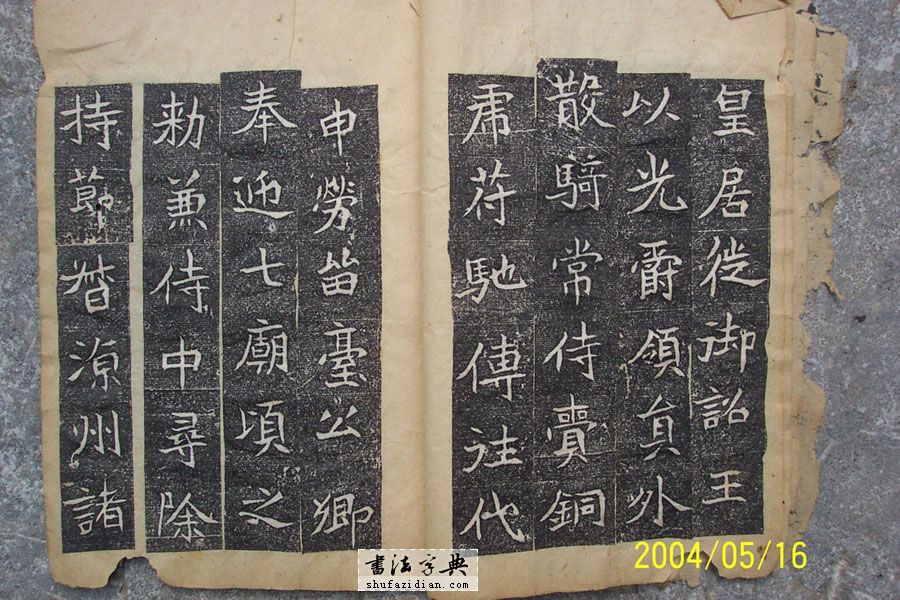 皇居徙御詔王
以光爵領貟外
散騎常侍賷銅
虎苻馳傳往代
申勞留臺公卿
奉迎七廟頃之
勑兼侍中尋除
持節督涼州諸
書法字典
shufazidian.com
2004/05/16